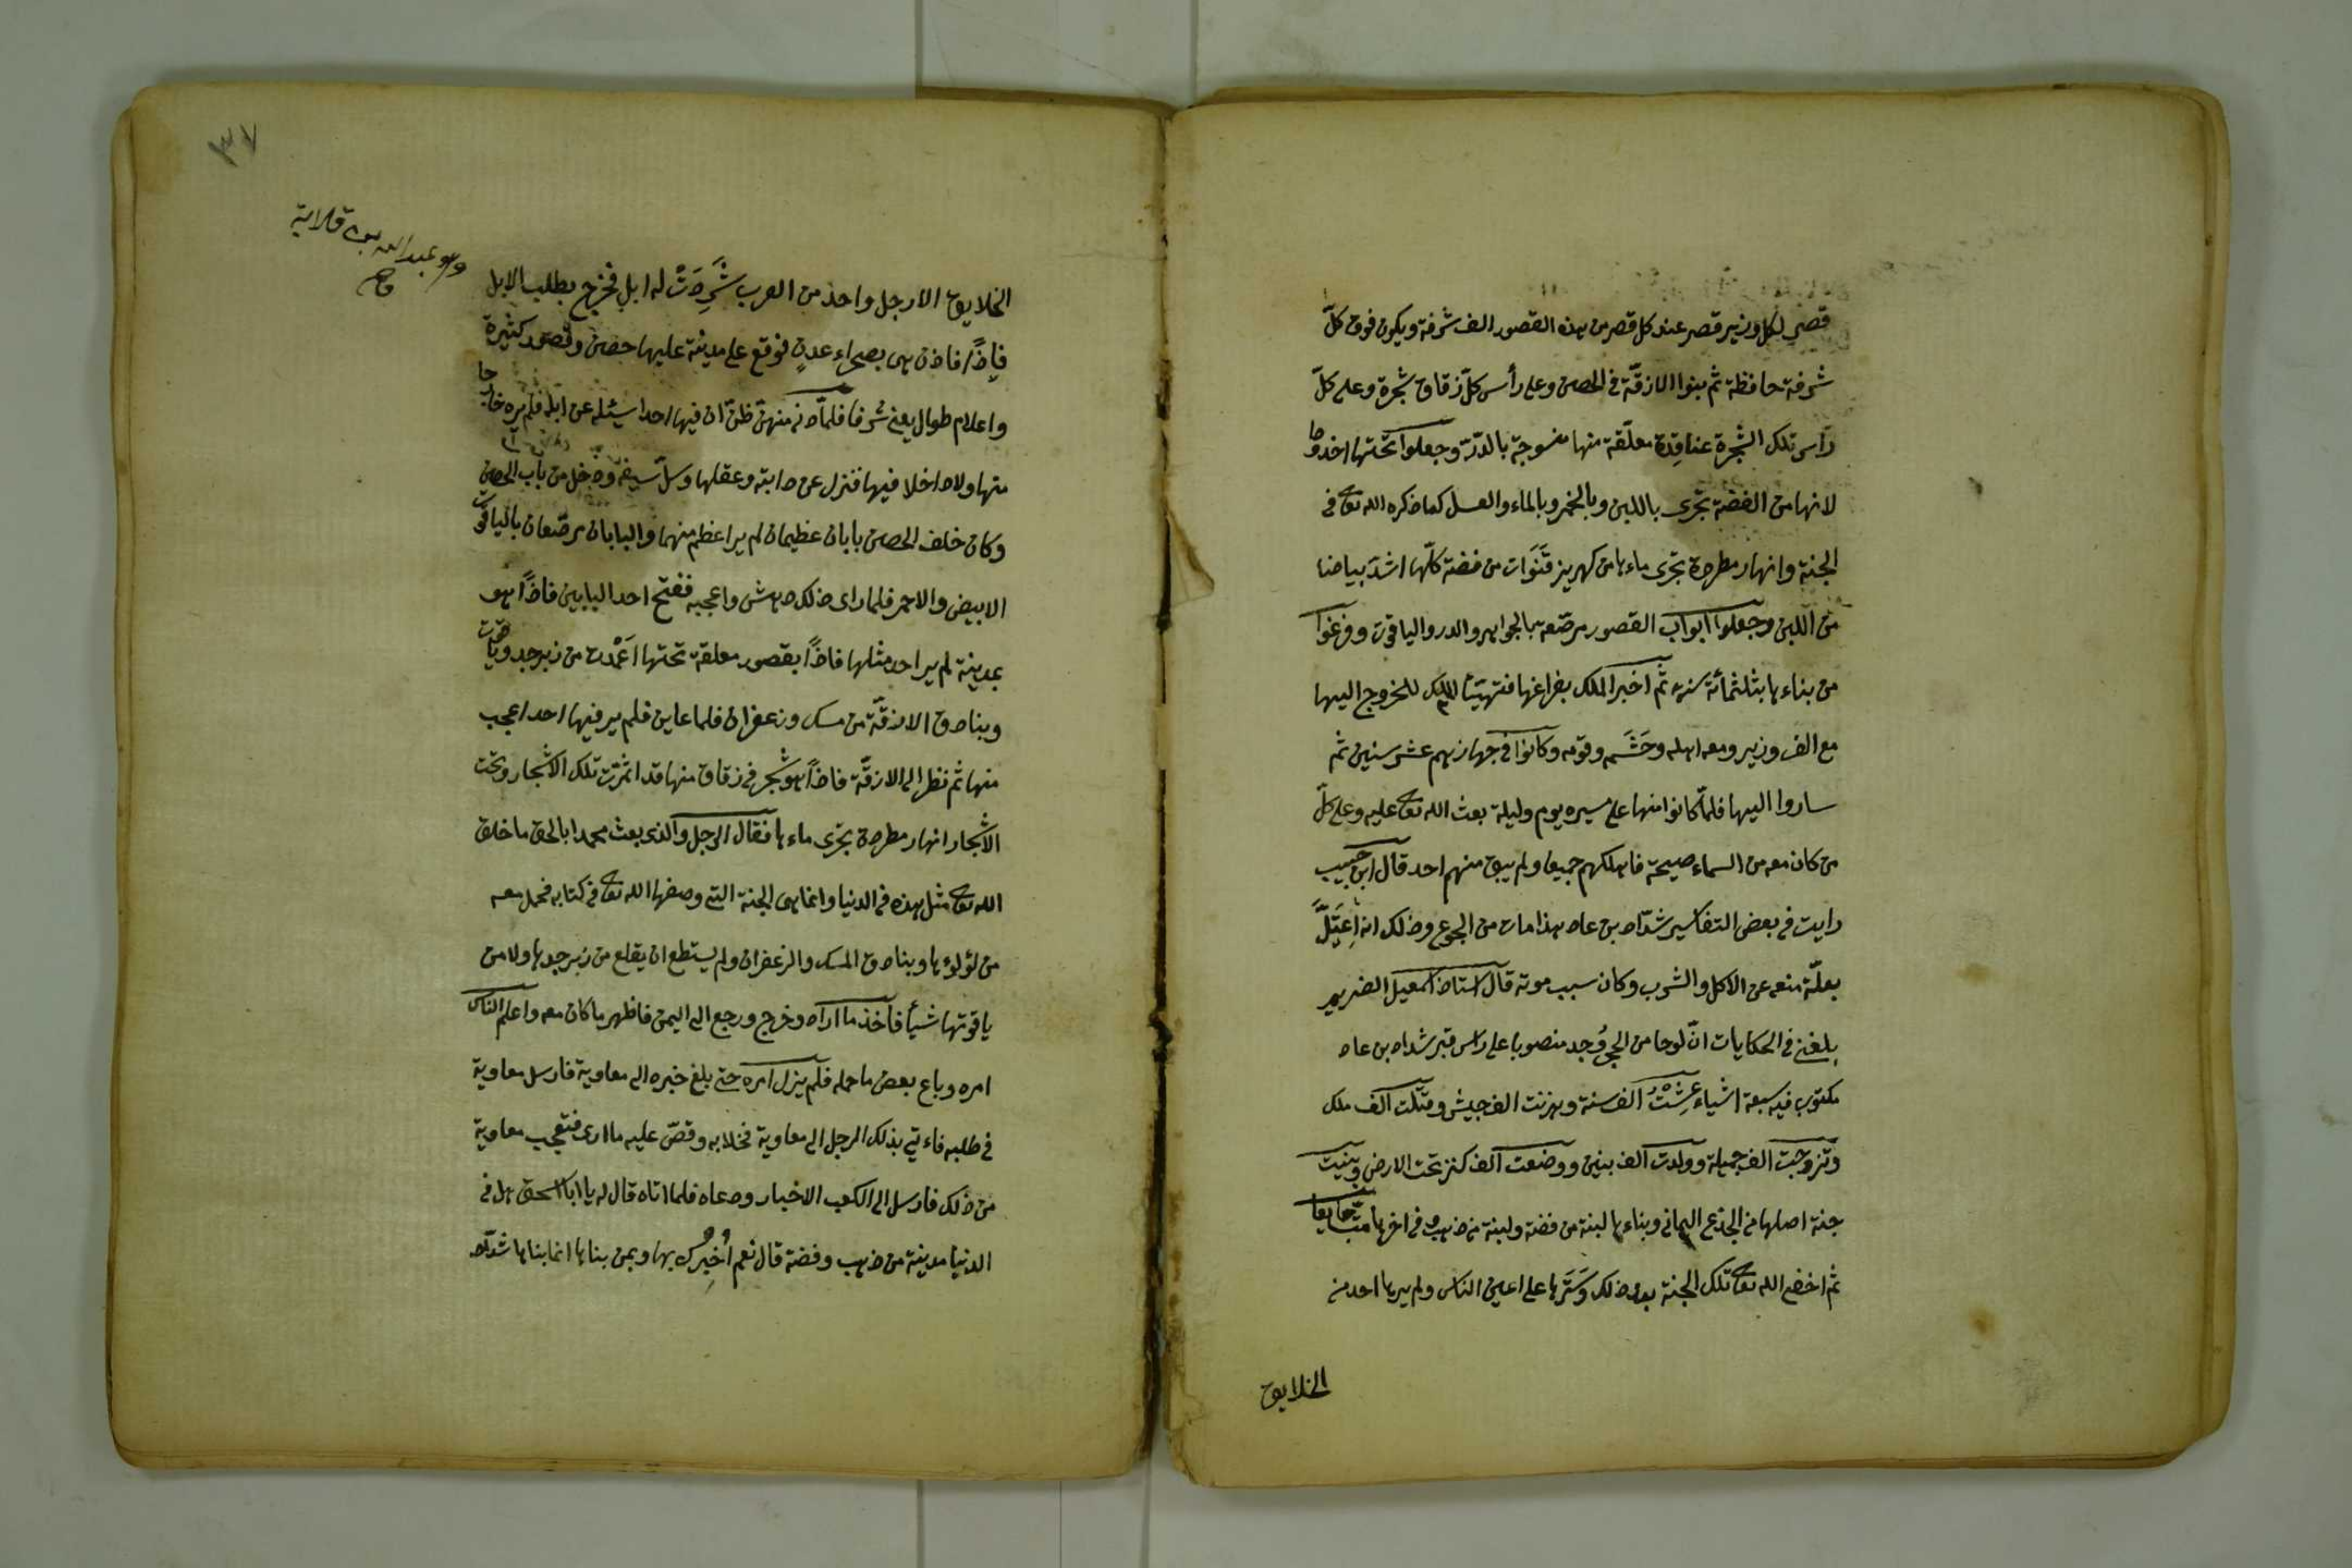 قصر لكل وزير قصر عند كل قصر من هذه القصور الف شرفة ويكون فوق كلّ
شرفة حافظة ثم بنوا الازقّة في الحصن وعلى رأس كلّ زقاق شجرة وعلى كلّ
رأس تلك الشجرة عناقدة معلّقة منها منسوجة بالدرّة وجعلوا تحتها اخدودا
لانها من الفضة تجرى باللبن وبالخمر وبالماء والعسل كما ذكره الله تعالى في
الجنة وانهار مطردة تجرى ماءها من كهريز قَنَوَات من فضة كلّها اشدّ بياضا
من اللبن وجعلوا ابواب القصور مرصّعة بالجواهر والدر والياقوت وفرغوا
من بناءها بثلثمائة سنة ثم اخبر الملك بفراغها فتهيّئا الملك للخروج اليها
مع الف وزير ومعه اهله وحَشَمه وقومه وكانوا في جهازهم عشر سنين ثم
ساروا اليها فلمّا كانوا منها على مسيره يوم وليلة بعث الله تعالى عليه وعلى كلّ
من كان معه من السماء صيحة فاهلكهم جميعا ولم يبق منهم احد قال ابن حبيب
رايت في بعض التفاسير شدّاد بن عاد هذا مات من الجوع وذلك انه اِعتَلَّ
بعلّة منعه عن الاكل والشرب وكان سبب موته قال استاذ اسمعيل الضرير
بلغني في الحكايات انّ لوحا من الحجر وُجد منصوبا على رأس قبر شداد بن عاد
مكتوب فيه سبعة اشياء عِشْتُ الف سنة وهزمت الف جيش وقتلت الف ملك
وتزوجت الف جميلة وولدت الف بنين ووضعت الف كنز تحت الارض وبنيت
جنة اصلها من الجذع اليماني وبناءها لبنة من فضة ولبنة من ذهب وفي اخرها مت جايعا
ثم اخفى الله تعالى تلك الجنة بعد ذلك وسَتَرها على اعين الناس ولم يرها احد من
الخلايق
٣٧
وهو عبد الله بن قلابة
الخلايق الا رجل واحد من العرب شَرِدَتْ له ابل فخرج بطلب الابل
فاِذًا فاذن هي بصحراء عدن فوقع على مدينة عليها حصن وقصور كثيرة
واعلام طوال يعني شرفا فلمّا دنى منهنّ ظنّ ان فيها احدا يسئله عن ابله فلم يره خارجا
منها ولا داخلا فيها فنزل عن دابته وعقلها وسلّ سيفه ودخل من باب الحصن
وكان خلف الحصن بابان عظيمان لم ير اعظم منهما والبابان مرصّعان بالياقوت
الابيض والاحمر فلما راى ذلك دهش واعجبه ففتح احد البابين فاذًا هو
بمدينة لم ير احد مثلها فاذًا بقصور معلقة تحتها اَعْمدت من زبرجد وياقوت
وبنادق الازقّة من مسك وزعفران فلما عاين فلم ير فيها احدا عجب
منها ثم نظر الى الازقّة فاذًا هو شجر في زقاق منها قد اثمرت تلك الاشجار وتحت
الاشجار انهار مطردة تجرى ماءها فقال الرجل والذى بعث محمدا بالحق ما خلق
الله تعالى مثل هذه في الدنيا وانما هى الجنة التي وصفها الله تعالى في كتابه فحمل معه
من لؤلوءها وبنادق المسك والزعفران ولم يستطع ان يقلع من زبرجدها ولا من
ياقوتها شيأ فأخذ ما اراد وخرج ورجع الى اليمن فاظهر ما كان معه واعلم الناس
امره وباع بعض ما حمله فلم يزل امره حتى بلغ خبره الى معاوية فارسل معاوية
في طلبه فاءتي بذلك الرجل الى معاوية فخلا به وقصّ عليه ما ارى فتعجب معاوية
من ذلك فارسل الى الكعب الاخبار ودعاه فلما اتاه قال له يا ابا اسحق هل في
الدنيا مدينة من ذهب وفضة قال نعم اُخبِرُك بها وبمن بناها انما بناها شدّاد